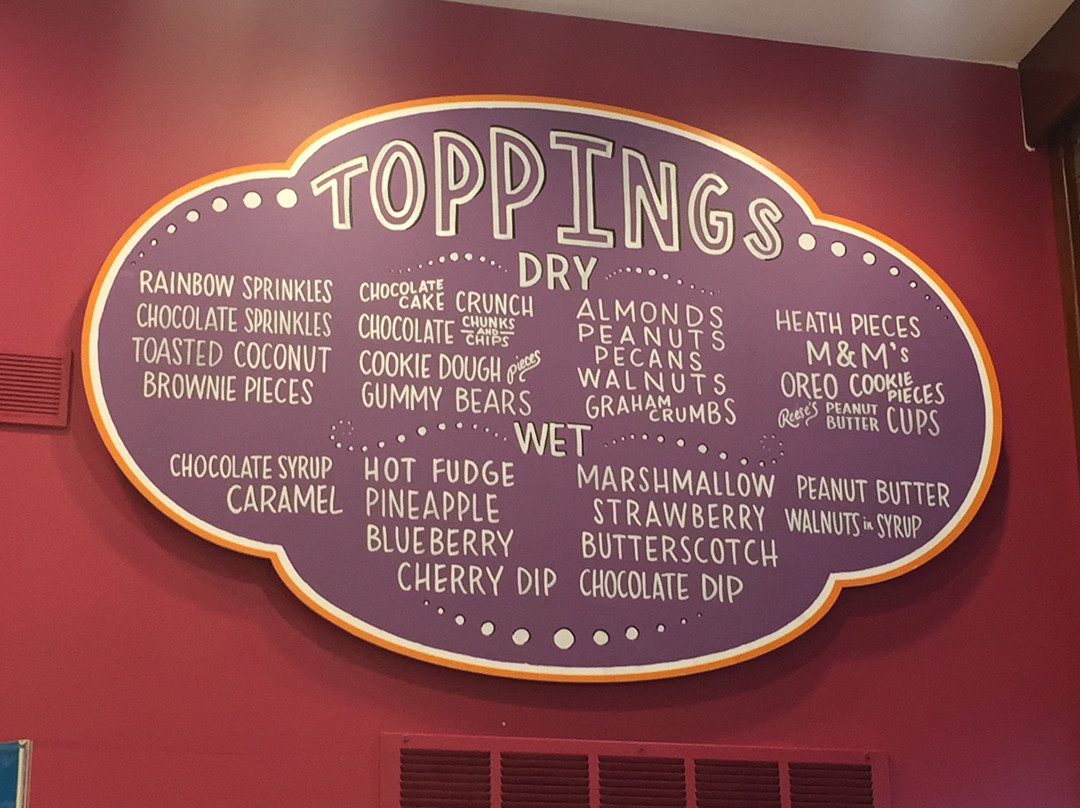 TOPPINGS
DRY
RAINBOW SPRINKLES
CHOCOLATE SPRINKLES
TOASTED COCONUT
BROWNIE PIECES
CHOCOLATE CAKE CRUNCH
CHOCOLATE CHUNKS AND CHIPS
COOKIE DOUGH pieces
GUMMY BEARS
ALMONDS
PEANUTS
PECANS
WALNUTS
GRAHAM CRUMBS
HEATH PIECES
M&M's
OREO COOKIE PIECES
Reese's PEANUT BUTTER CUPS
WET
CHOCOLATE SYRUP
CARAMEL
HOT FUDGE
PINEAPPLE
BLUEBERRY
CHERRY DIP
MARSHMALLOW
STRAWBERRY
BUTTERSCOTCH
CHOCOLATE DIP
PEANUT BUTTER
WALNUTS in SYRUP